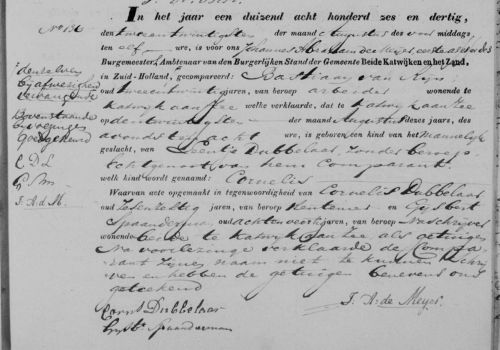 No 136
In het jaar een duizend acht honderd zes en dertig,
den tweeentwintigsten der maand Augustus des voor middags,
ten elf ure, is voor ons Johannes
Burgemeester, Ambtenaar van den Burgerlijken Stand der Gemeente Beide Katwijken en het Zand,
in Zuid-Holland, gecompareerd: Bastiaan van Rijn
oud tweeentwintig jaren, van beroep arbeider wonende te
Katwijk aan Zee welke verklaarde, dat te Katwijk aan Zee
op den twintigsten der maand Augustus dezes jaars, des
avonds ten acht ure, is geboren een kind van het Mannelijk
geslacht, van Leentje Dubbelaar, zonder beroep
Echtgenoot van hem Comparant
welk kind wordt genaamd: Cornelis
Waarvan acte opgemaakt in tegenwoordigheid van Cornelis Dubbelaar
oud jaren, van beroep Rentenier en Gijsbert
Spaanderman oud achtenveertig jaren, van beroep
wonende beide te Katwijk aan Zee als getuigen
Na voorlezing verklaarde de Compa-
rant zijnen naam niet te kunnen schrij-
ven en hebben de getuigen benevens ons
geteekend
Corns Dubbelaar
Gysbt Spaanderman
J. A. de Meyer
denzelven
bij afwezenheid
vervangende
Bovenstaande
bijvoeging
Goedgekeurd
C D L
G Sm
J. A. d M.